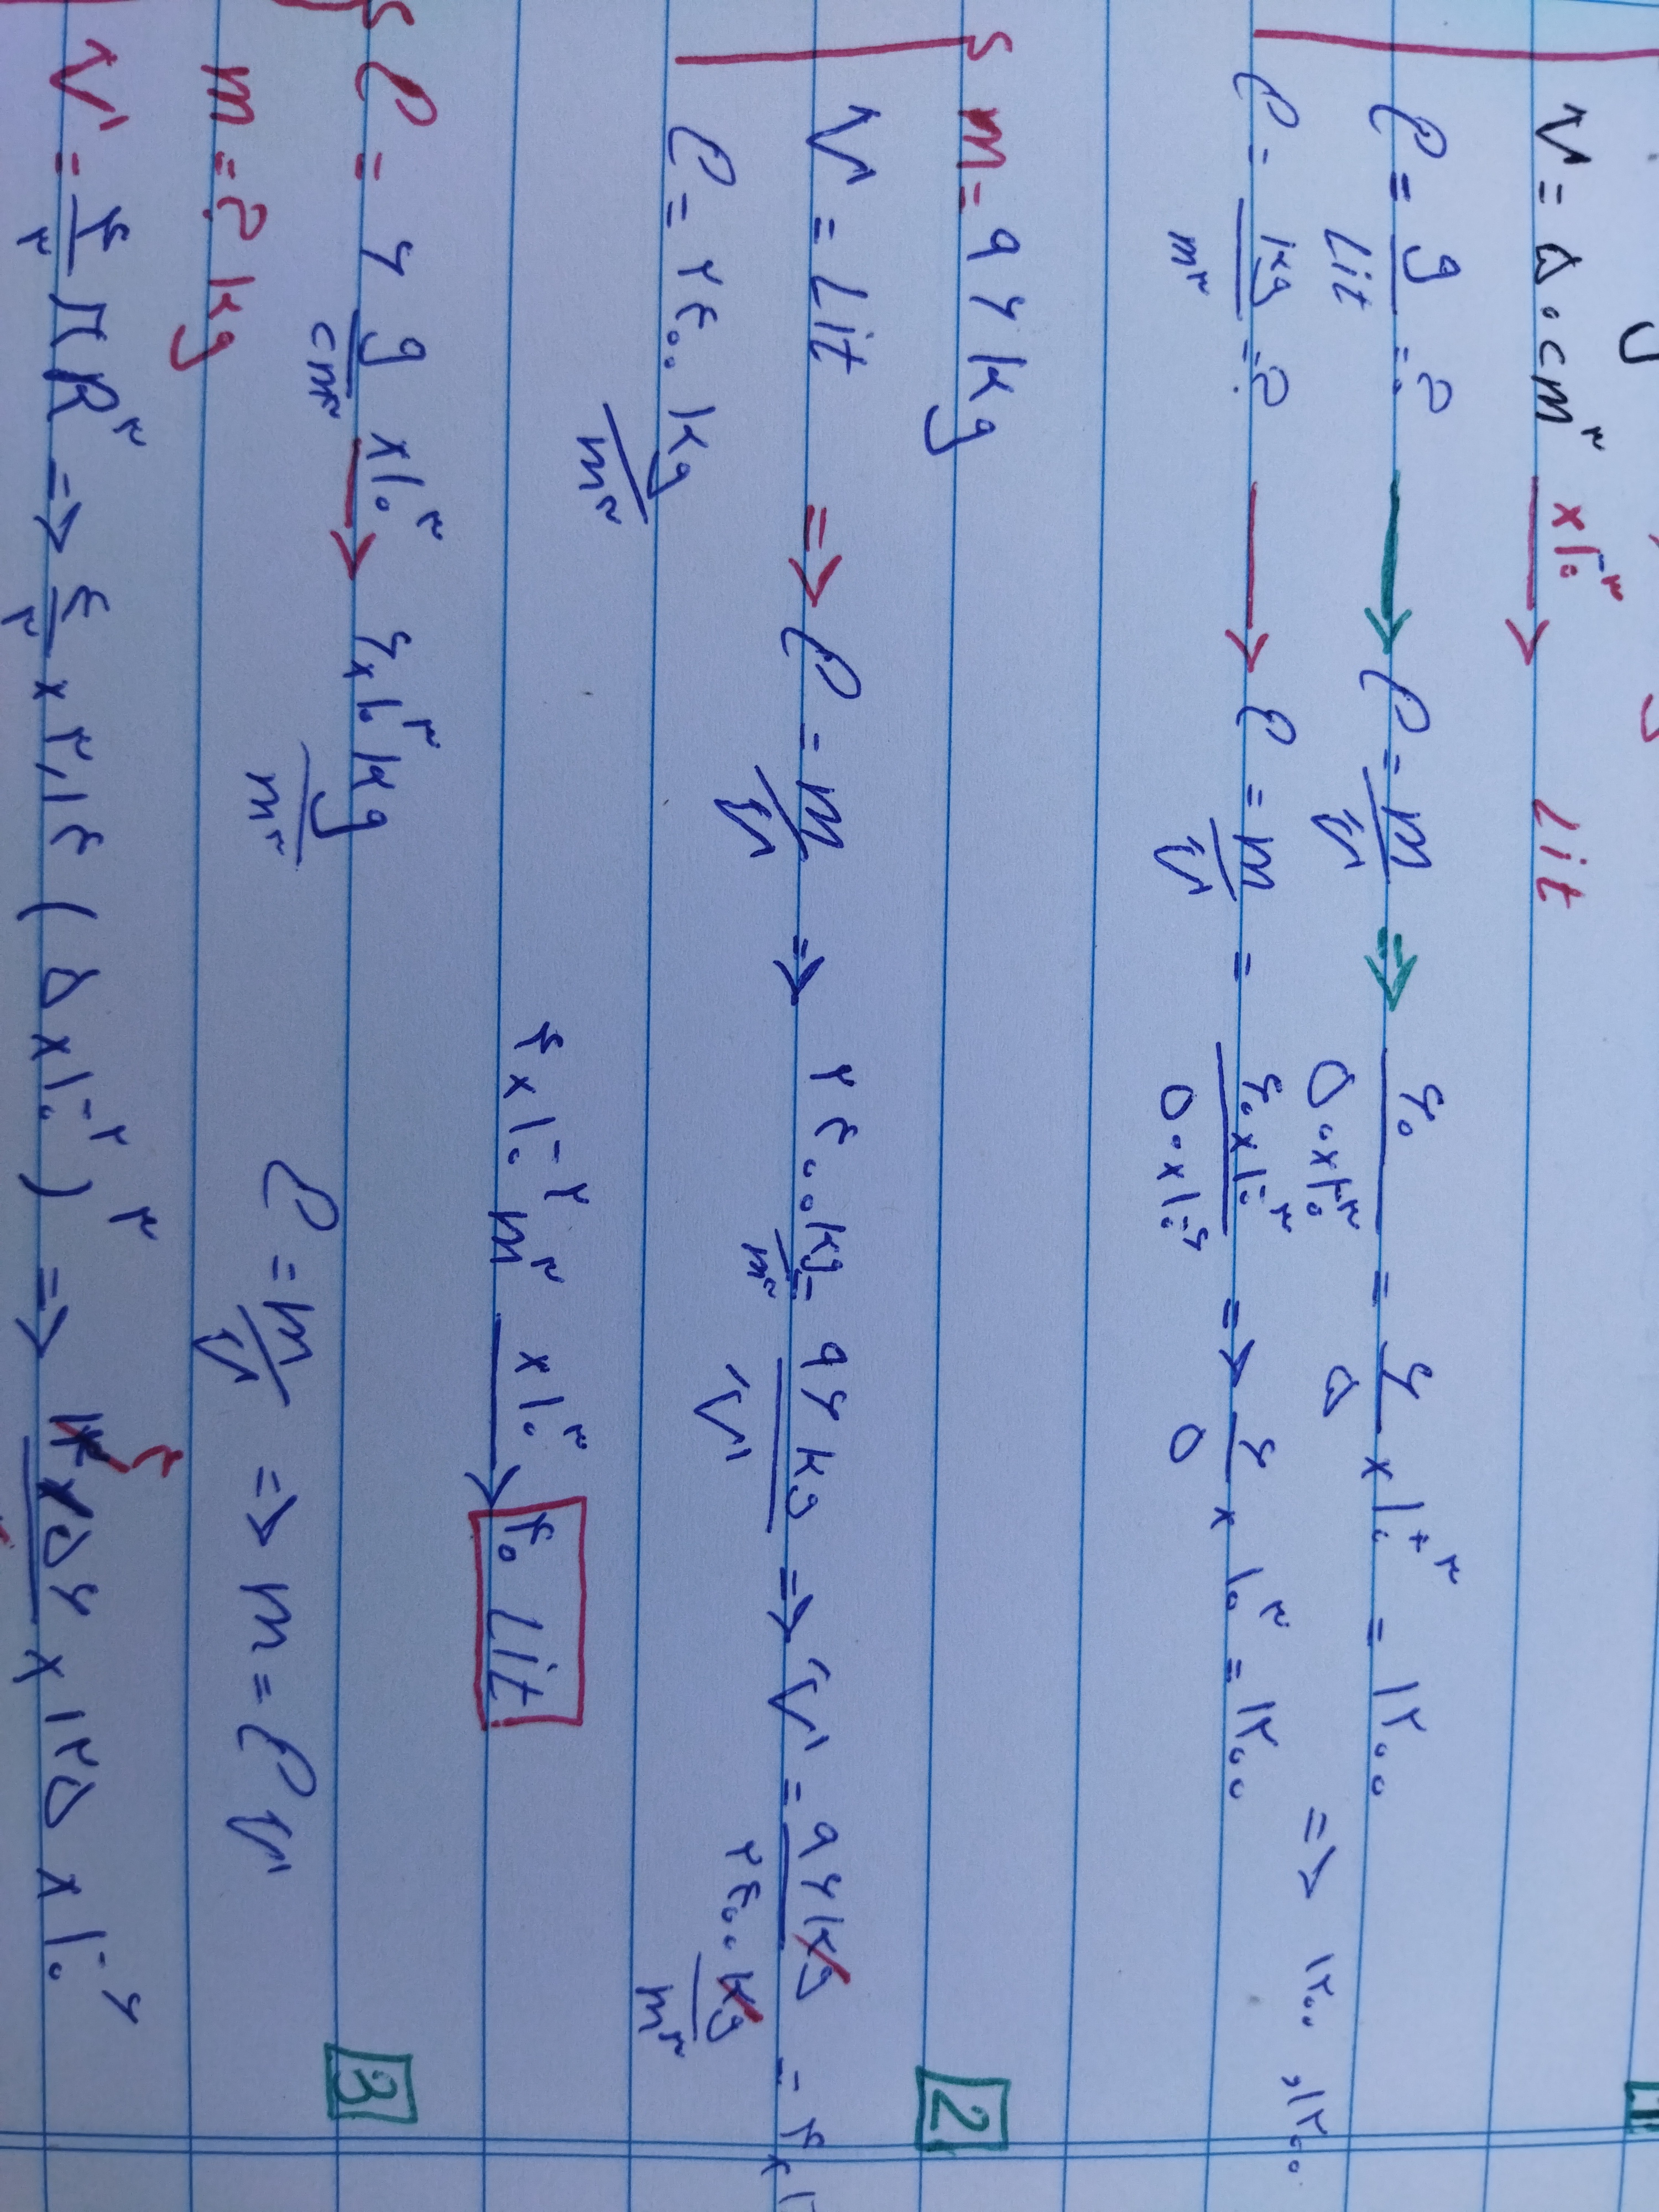 V = ۵۰ cm³ ×۱۰⁻³ → Lit
ρ = g/Lit = ? → ρ = m/V ⇒ ۶۰/۵۰×۱۰⁻³ = ۶/۵ × ۱۰⁺³ = ۱۲۰۰
⇒ ۱۲۰۰ , ۱۲۰۰
ρ = kg/m³ = ? → ρ = m/V = ۶۰×۱۰⁻³/۵۰×۱۰⁻⁶ ⇒ ۶/۵ × ۱۰³ = ۱۲۰۰
2
m = ۹۶ kg
V = Lit ⇒ ρ = m/V ⇒ ۲۴۰۰ kg/m³ = ۹۶ kg/V ⇒ V = ۹۶ kg/۲۴۰۰ kg/m³ = ۴×۱
ρ = ۲۴۰۰ kg/m³
۴×۱۰⁻² m³ ×۱۰³ → ۴۰ Lit
3
ρ = ۶ g/cm³ ×۱۰³ → ۶×۱۰³ kg/m³
m = ? kg
ρ = m/V ⇒ m = ρV
V = ۴/۳ πR³ ⇒ ۴/۳ × ۳,۱۴ (۵×۱۰⁻²)³ ⇒ × ۱۲۵ × ۱۰⁻⁶